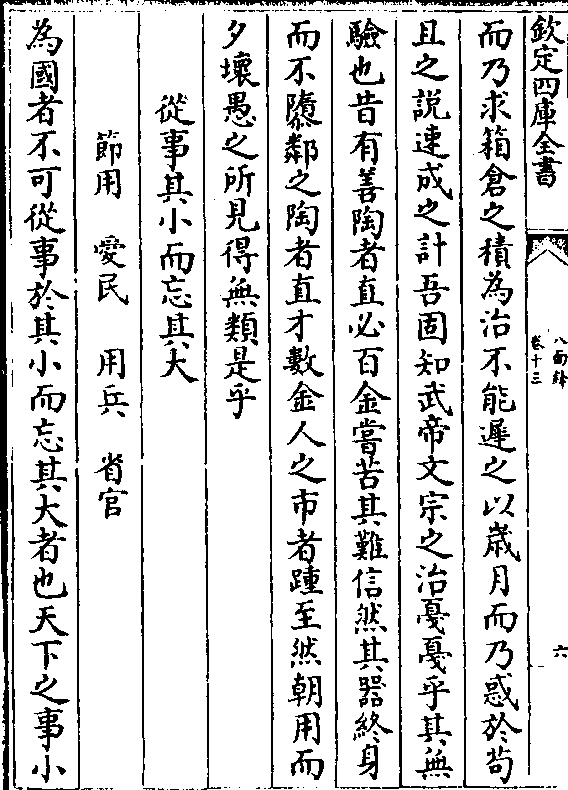 欽定四庫全書
八面鋒
卷十三
六
而乃求箱倉之積為治不能遲之以歲月而乃惑於茍
且之說速成之計吾固知武帝文宗之治戞戞乎其無
驗也昔有善陶者直必百金嘗苦其難信然其器終身
而不隳鄰之陶者直才數金人之市者踵至然朝用而
夕壞愚之所見得無類是乎
從事其小而忘其大
節用 愛民 用兵 省官
為國者不可從事於其小而忘其大者也天下之事小